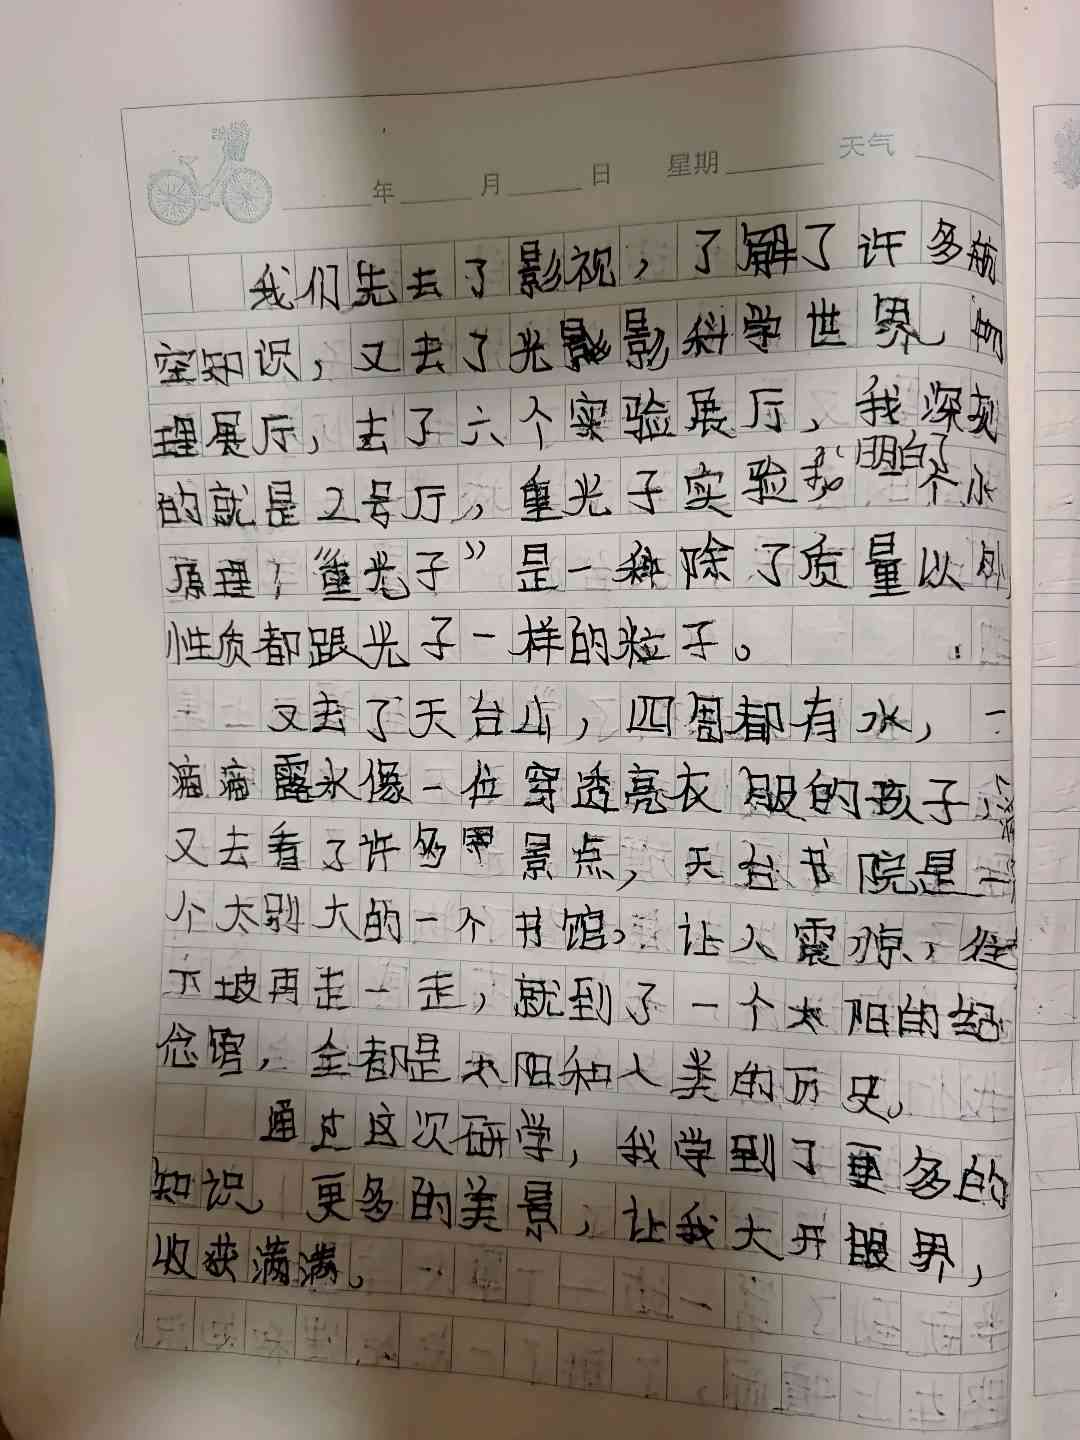 年 月 日 星期 天气
我们先去了影视，了解了许多航
空知识，又去了光影影科学世界，物
理展厅，去了六个实验展厅，我深刻
的就是2号厅，重光子实验 明白了一个小
原理，“重光子”是一种除了质量以外
性质都跟光子一样的粒子。
又去了天台山，四周都有水，一
滴滴露水像一位穿透亮衣服的孩子
又去看了许多 景点，天台书院是一
个太别大的一个书馆，让人震惊，往
下坡再走一走，就到了一个太阳的纪
念馆，全都是太阳和人类的历史。
通过这次研学，我学到了更多的
知识。更多的美景，让我大开眼界，
收获满满。